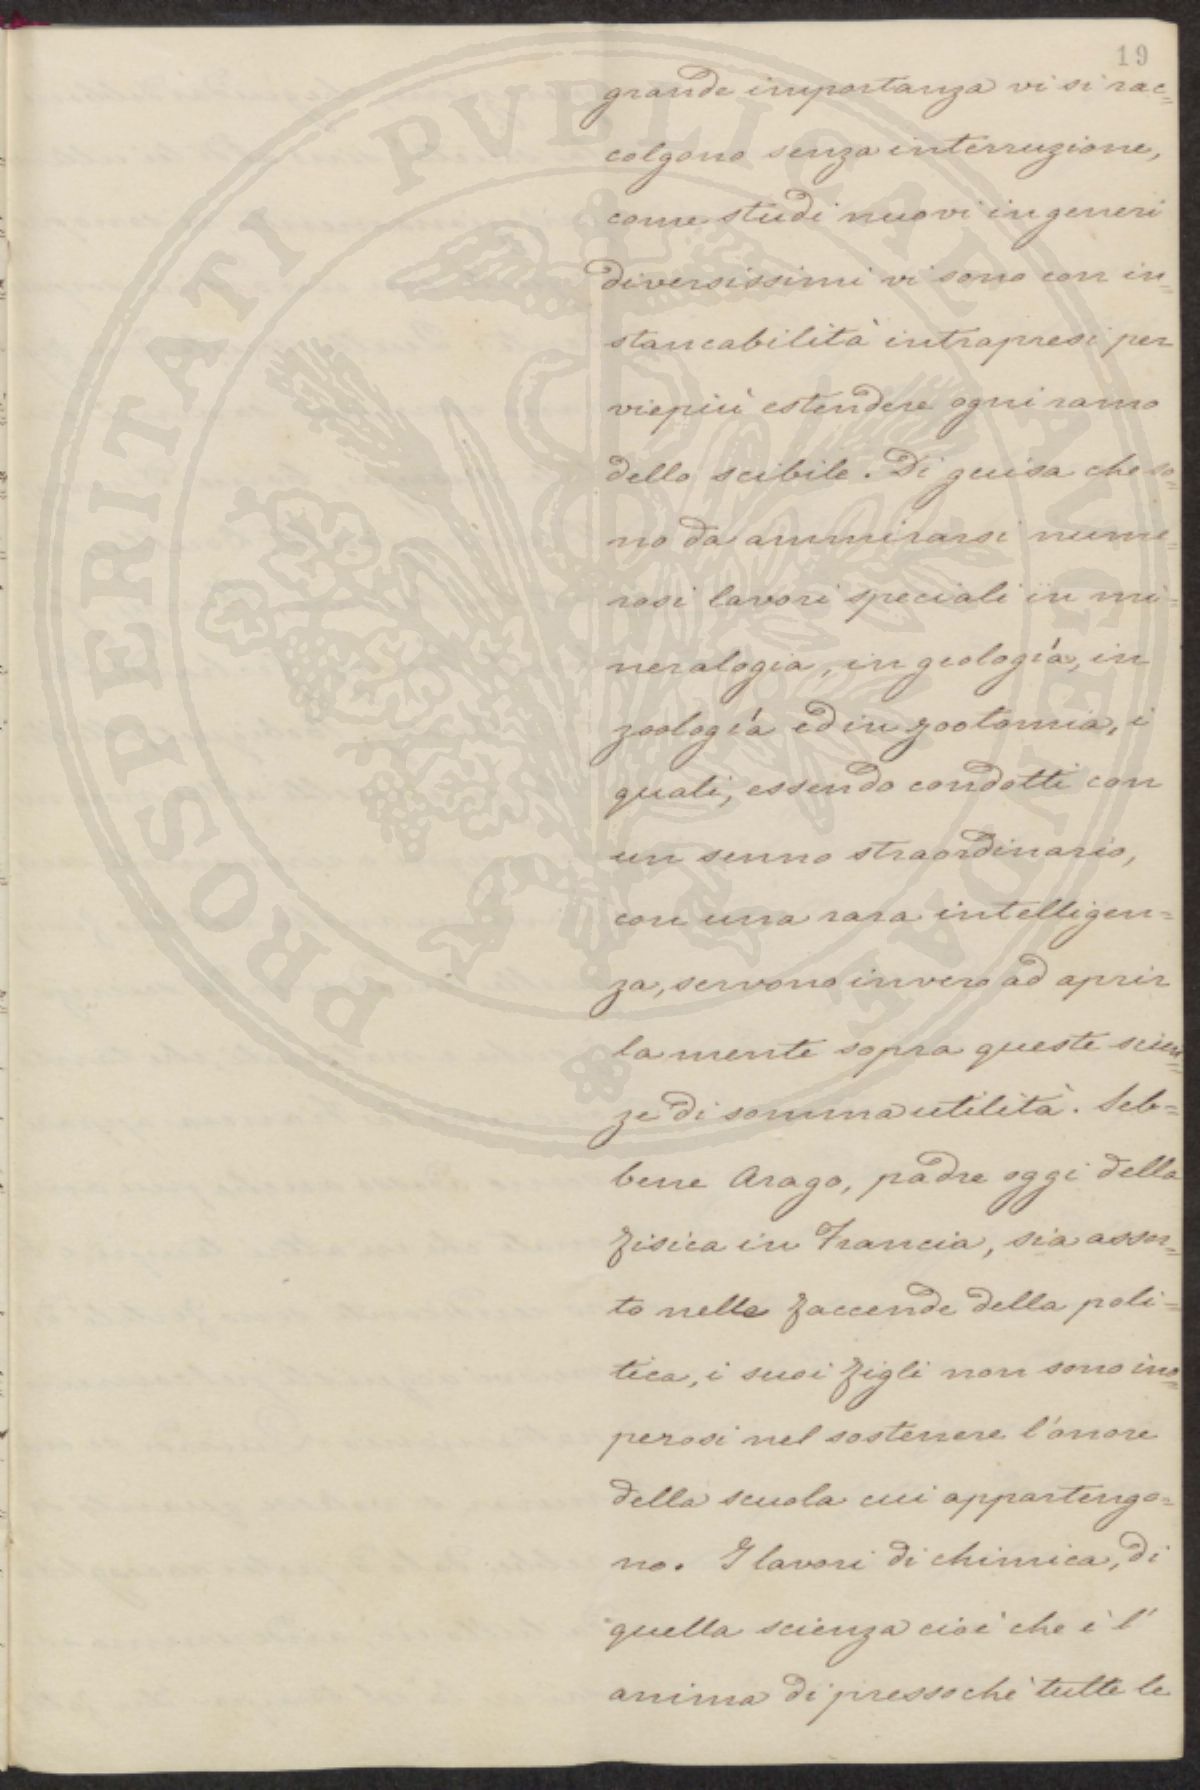 19
grande importanza vi si rac=
colgono senza interruzione,
come studi nuovi in generi
diversissimi vi sono con in=
stancabilità intrapresi per
viepiù estendere ogni ramo
dello scibile. Di guisa che so=
no da ammirarsi nume=
rosi lavori speciali in mi=
neralogia, in geología, in
zoología ed in zootomia, i
quali, essendo condotti con
un senno straordinario,
con una rara intelligen=
za, servono invero ad aprir
la mente sopra queste scien=
ze di somma utilità. Seb=
bene Arago, padre oggi della
fisica in Francia, sia assor=
to nelle faccende della poli=
tica, i suoi figli non sono ino=
perosi nel sostenere l'onore
della scuola cui appartengo=
no. I lavori di chimica, di
quella scienza cioè che è l'
anima di pressochè tutte le
PROSPERITATI PVBLICAE AVGENDAE